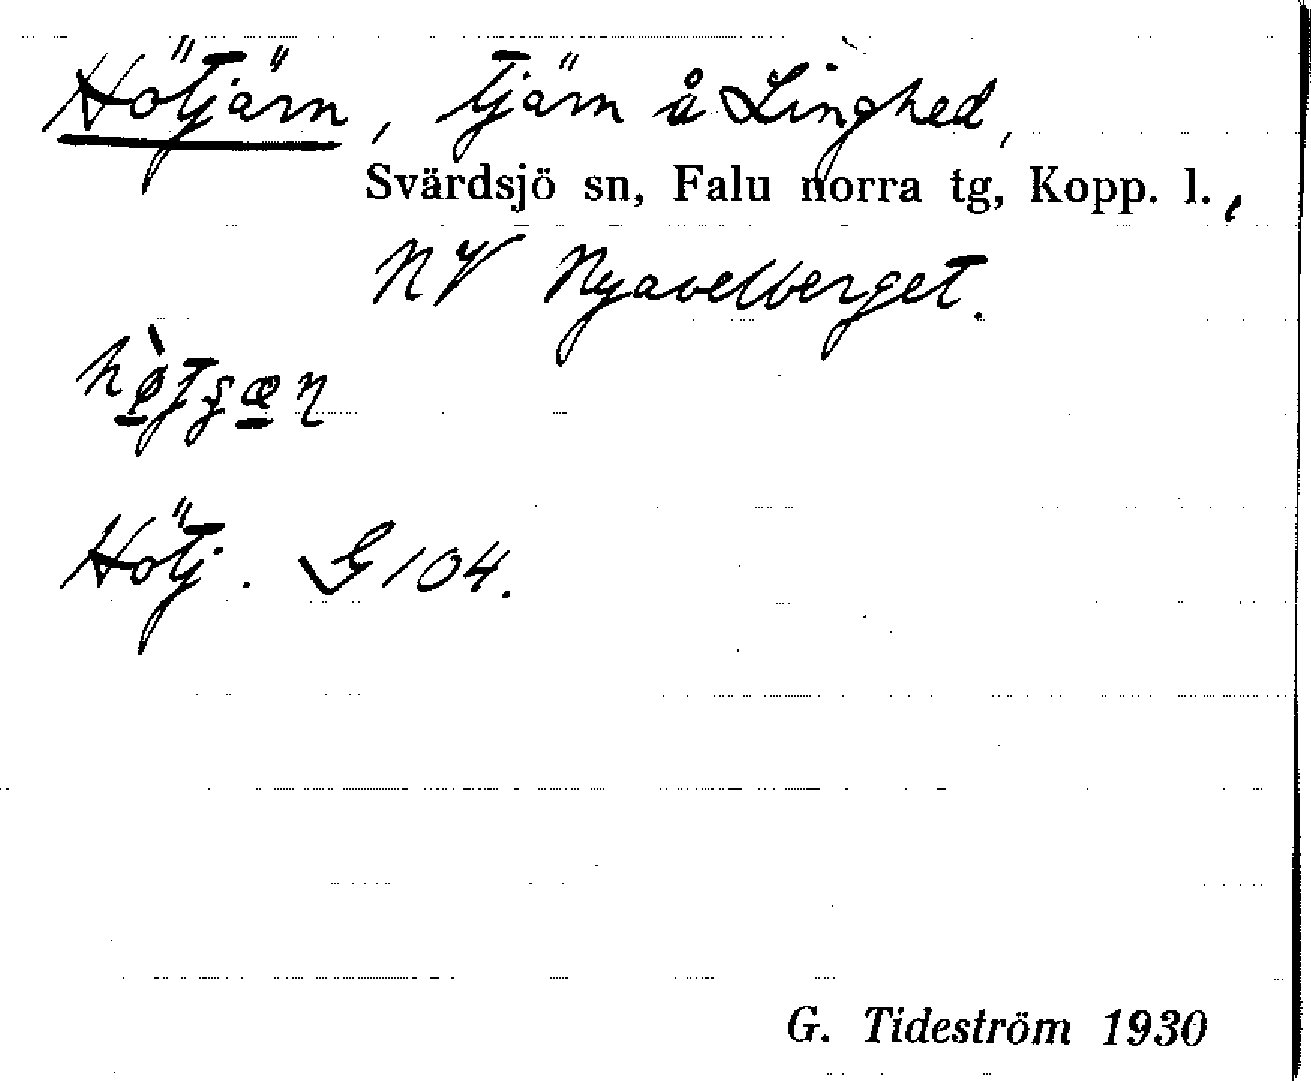 Hötjärn, tjärn å Linghed,
Svärdsjö sn, Falu norra tg, Kopp. l.,
NV Nyavelberget.
Hötj. G 104.
G. Tideström 1930